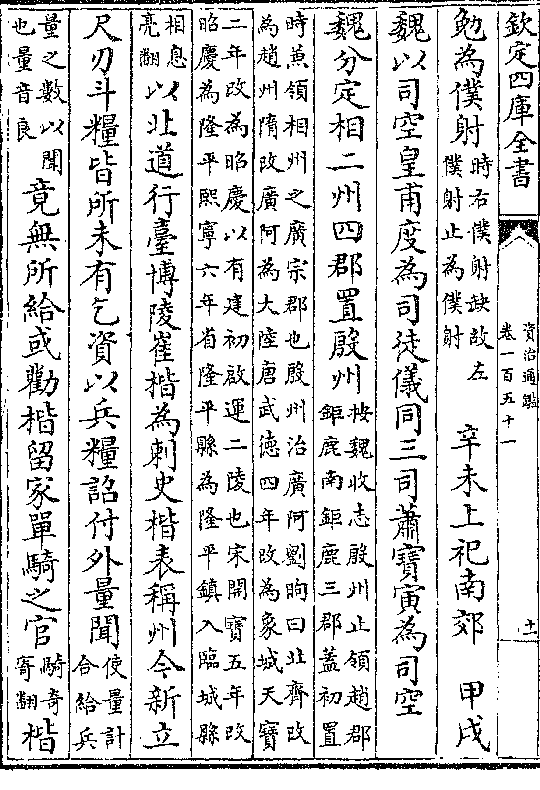 欽定四庫全書
資治通鑑
卷一百五十一
十一
勉為僕射
時右僕射缺故左
僕射止為僕射
辛未上祀南郊　甲戌
魏以司空皇甫度為司徒儀同三司蕭寶寅為司空
魏分定相二州四郡置殷州
按魏收志殷州止領趙郡
鉅鹿南鉅鹿三郡蓋初置
時兼領相州之廣宗郡也殷州治廣阿劉昫曰北齊改
為趙州隋改廣阿為大陸唐武德四年改為象城天寶
二年改為昭慶以有建初啟運二陵也宋開寶五年改
昭慶為隆平熙寧六年省隆平縣為隆平鎮入臨城縣
相息
亮翻
以北道行臺博陵崔楷為刺史楷表稱州今新立
尺刃斗糧皆所未有乞資以兵糧詔付外量聞
使量計
合給兵
量之數以聞
也量音良
竟無所給或勸楷留家單騎之官
騎奇
寄翻
楷